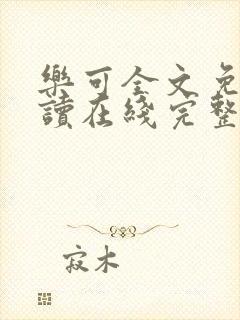 樂可全文免
讀在綫完整
寂木